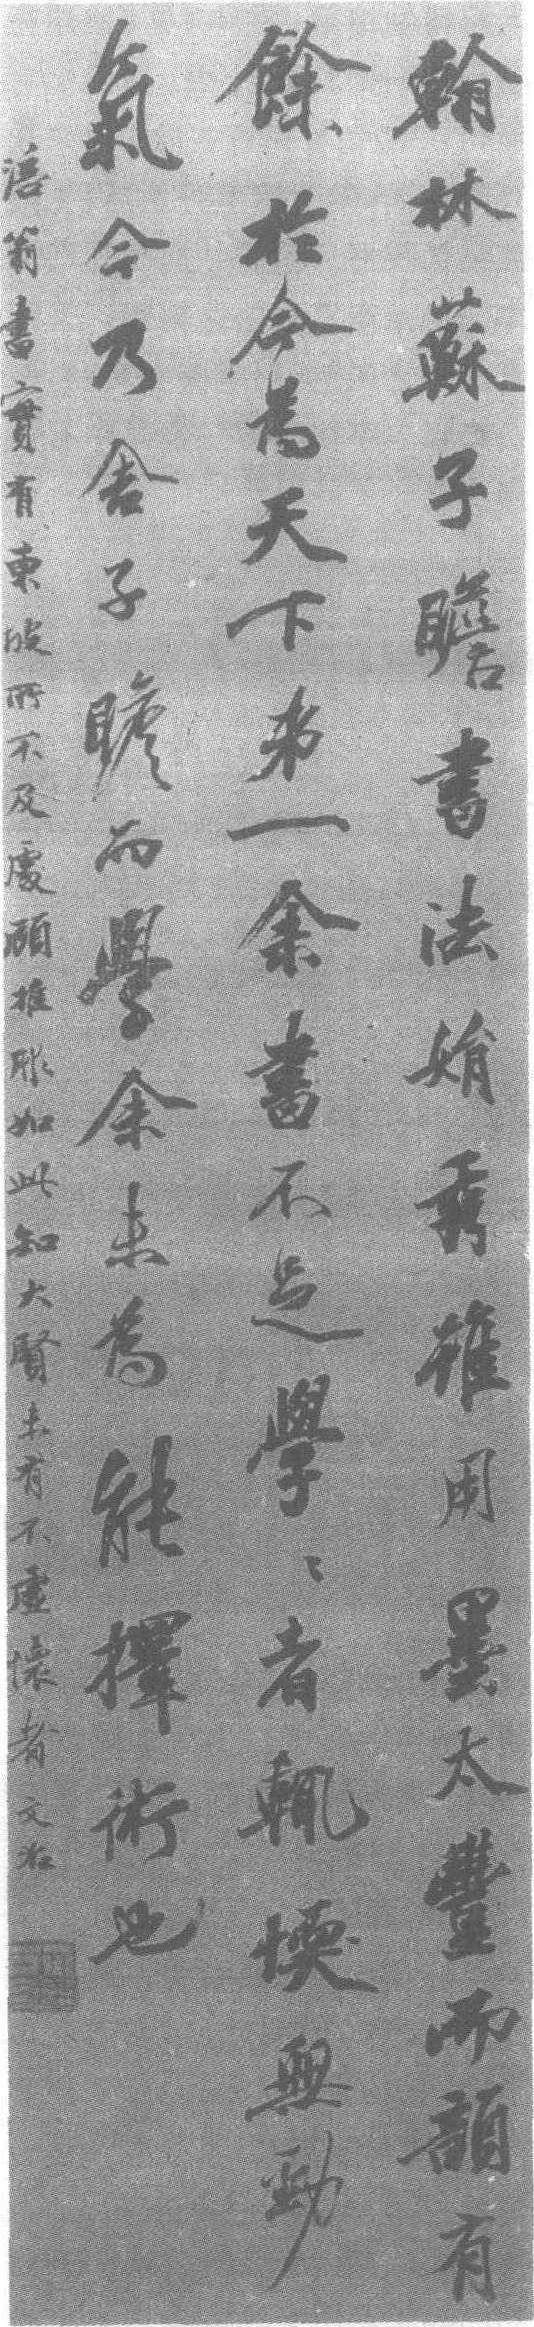 翰林蘇子瞻書法娟秀雖用墨太豐而韻有
餘於今為天下弟一余書不足學〻者輒愞無勁
氣今乃舍子瞻而學余未為能擇術也
涪翁書實有東坡所不及處頋推彫如此知大賢未有不虛懷者 文治